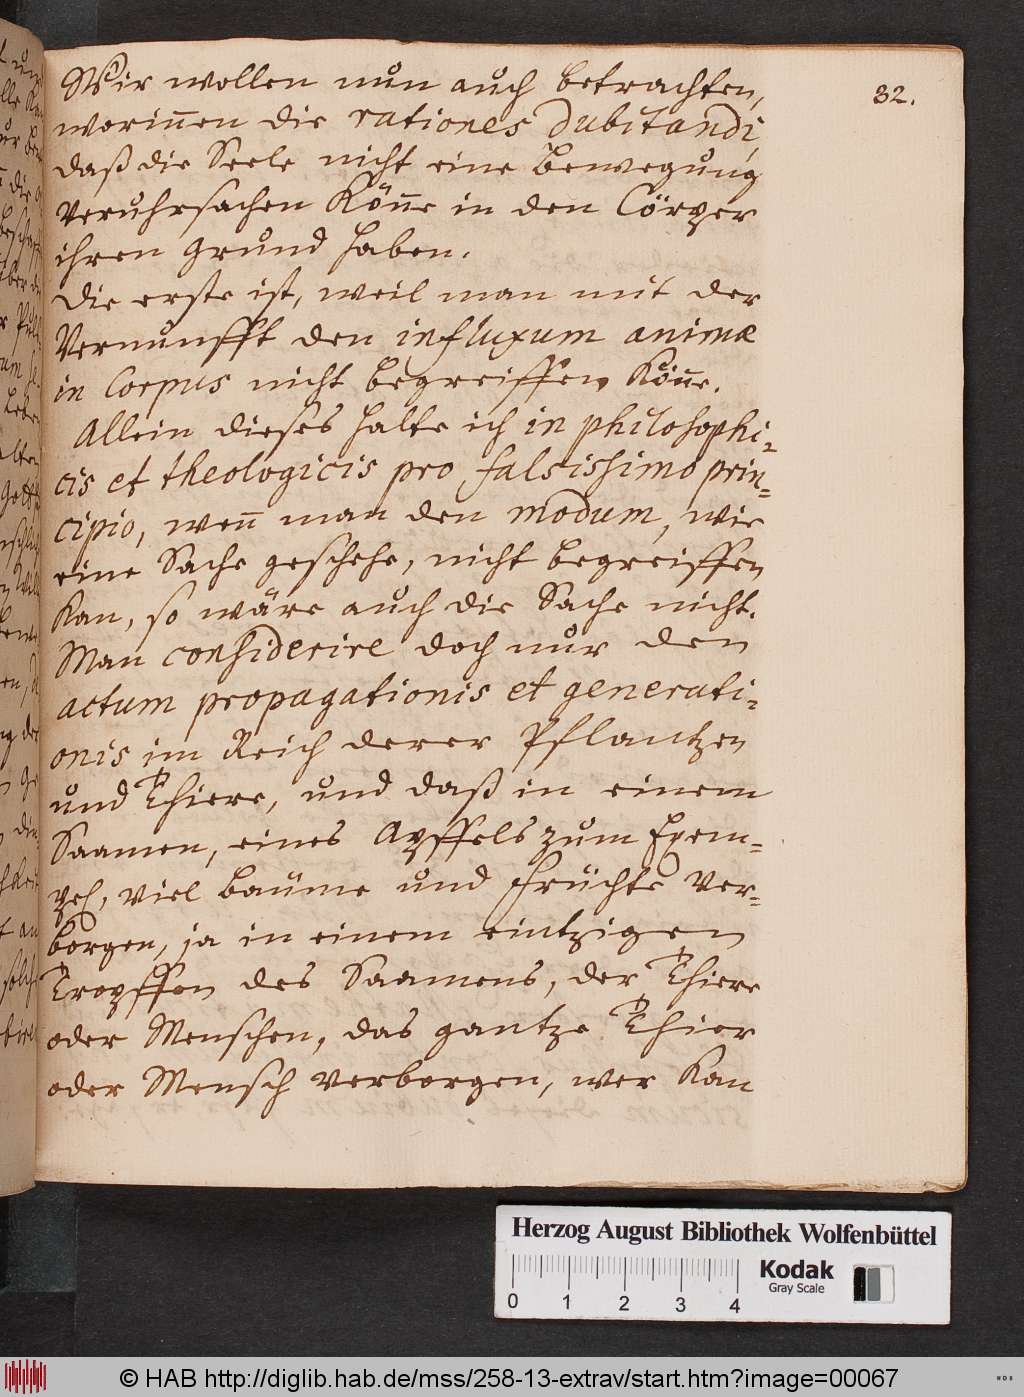 32.
Wir wollen nun auch betrachten,
woriñen die rationes dubitandi,
daß die Seele nicht eine Bewegung
Veruhrsachen Köñe in den Cörper
ihren grund haben.
Die erste ist, weil man mit der
Vernunfft den influxum animæ
in Corpus nicht begreiffen Köñe.
Allein dieses halte ich in philosophi-
cis et theologicis pro falsissimo prin-
cipio, weñ man den modum, wie
eine Sache geschehe, nicht begreiffen
Kan, so wäre auch die Sache nicht.
Man considerire doch nur den
actum propagationis et generati-
onis im Reich derer Pflantzen
und Thiere, und daß in einem
Saamen, eines Apffels zum Exem-
pel, viel Bäume und Früchte ver-
borgen, ja in einem eintzigen
Tropffen des Saamens, der Thiere
oder Menschen, das gantze Thier
oder Mensch verborgen, wer Kan
Herzog August Bibliothek Wolfenbüttel
Kodak
Gray Scale
0 1 2 3 4
© HAB http://diglib.hab.de/mss/258-13-extrav/start.htm?image=00067